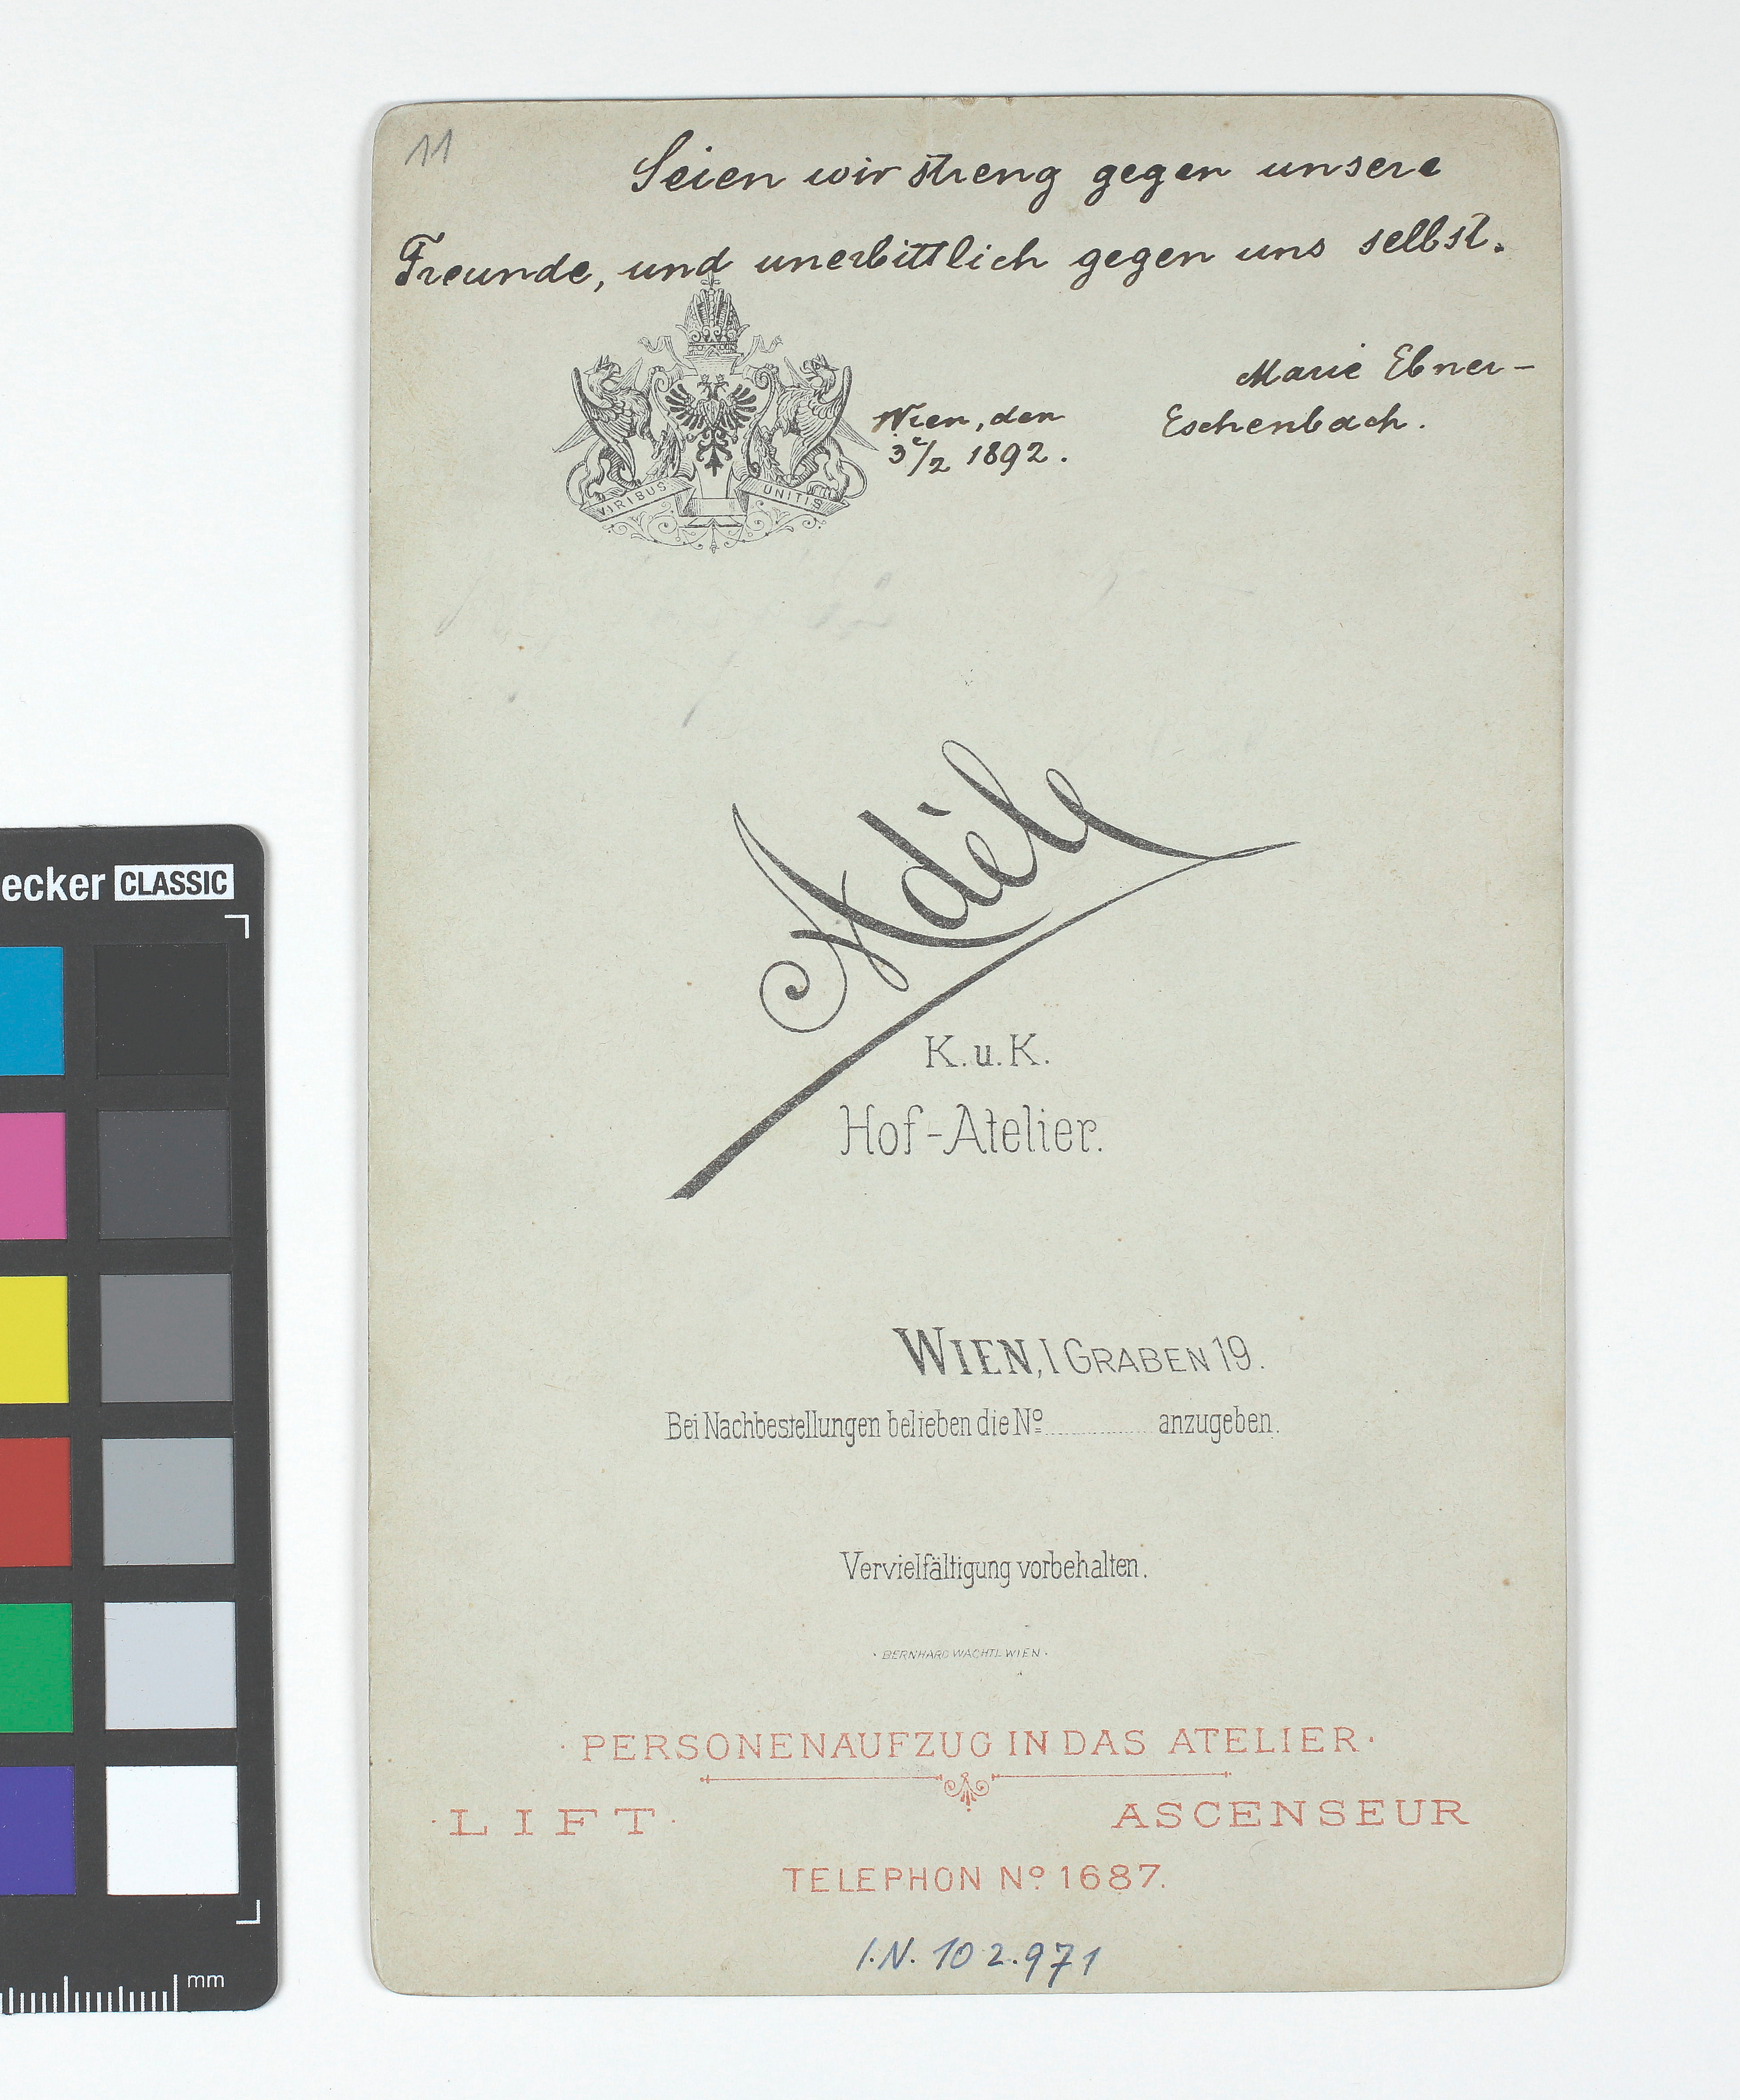 11
Seien wir streng gegen unsere
Freunde, und unerbittlich gegen uns selbst.
Marie Ebner-
Eschenbach.
Wien, den
3/2 1892.
VIRIBUS UNITIS
Adèle
K. u. K.
Hof-Atelier.
WIEN, I GRABEN 19.
Bei Nachbestellungen belieben die Nº ............ anzugeben.
Vervielfältigung vorbehalten.
· BERNHARD WACHTL WIEN ·
· PERSONENAUFZUG IN DAS ATELIER ·
· LIFT · ASCENSEUR
TELEPHON Nº 1687.
I.N. 102.971
ecker CLASSIC
mm